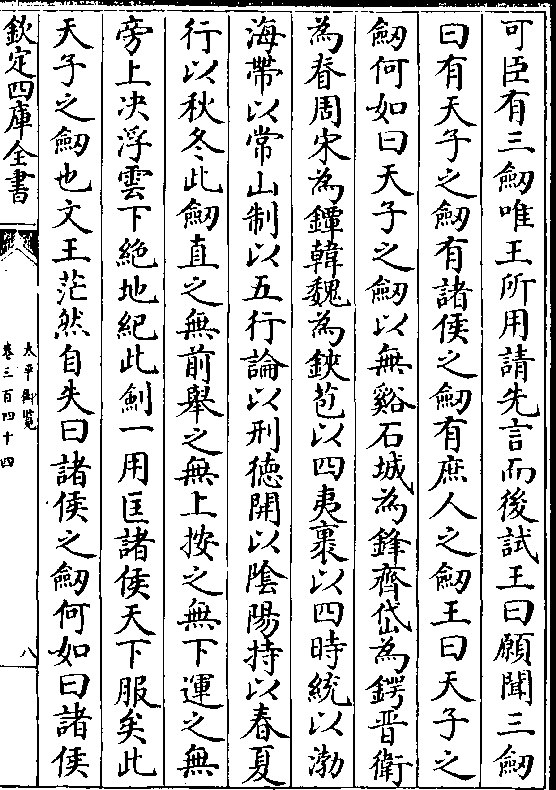 可臣有三劒唯王所用請先言而後試王曰願聞三劒
曰有天子之劒有諸侯之劒有庶人之劒王曰天子之
劒何如曰天子之劒以無谿石城為鋒齊岱為鍔晉衛
為脊周宋為鐔韓魏為鋏苞以四夷裹以四時統以渤
海帶以常山制以五行論以刑徳開以隂陽持以春夏
行以秋冬此劒直之無前舉之無上按之無下運之無
旁上决浮雲下絶地紀此劍一用匡諸侯天下服矣此
天子之劒也文王茫然自失曰諸侯之劒何如曰諸侯
欽定四庫全書
太平御覧
卷三百四十四
八